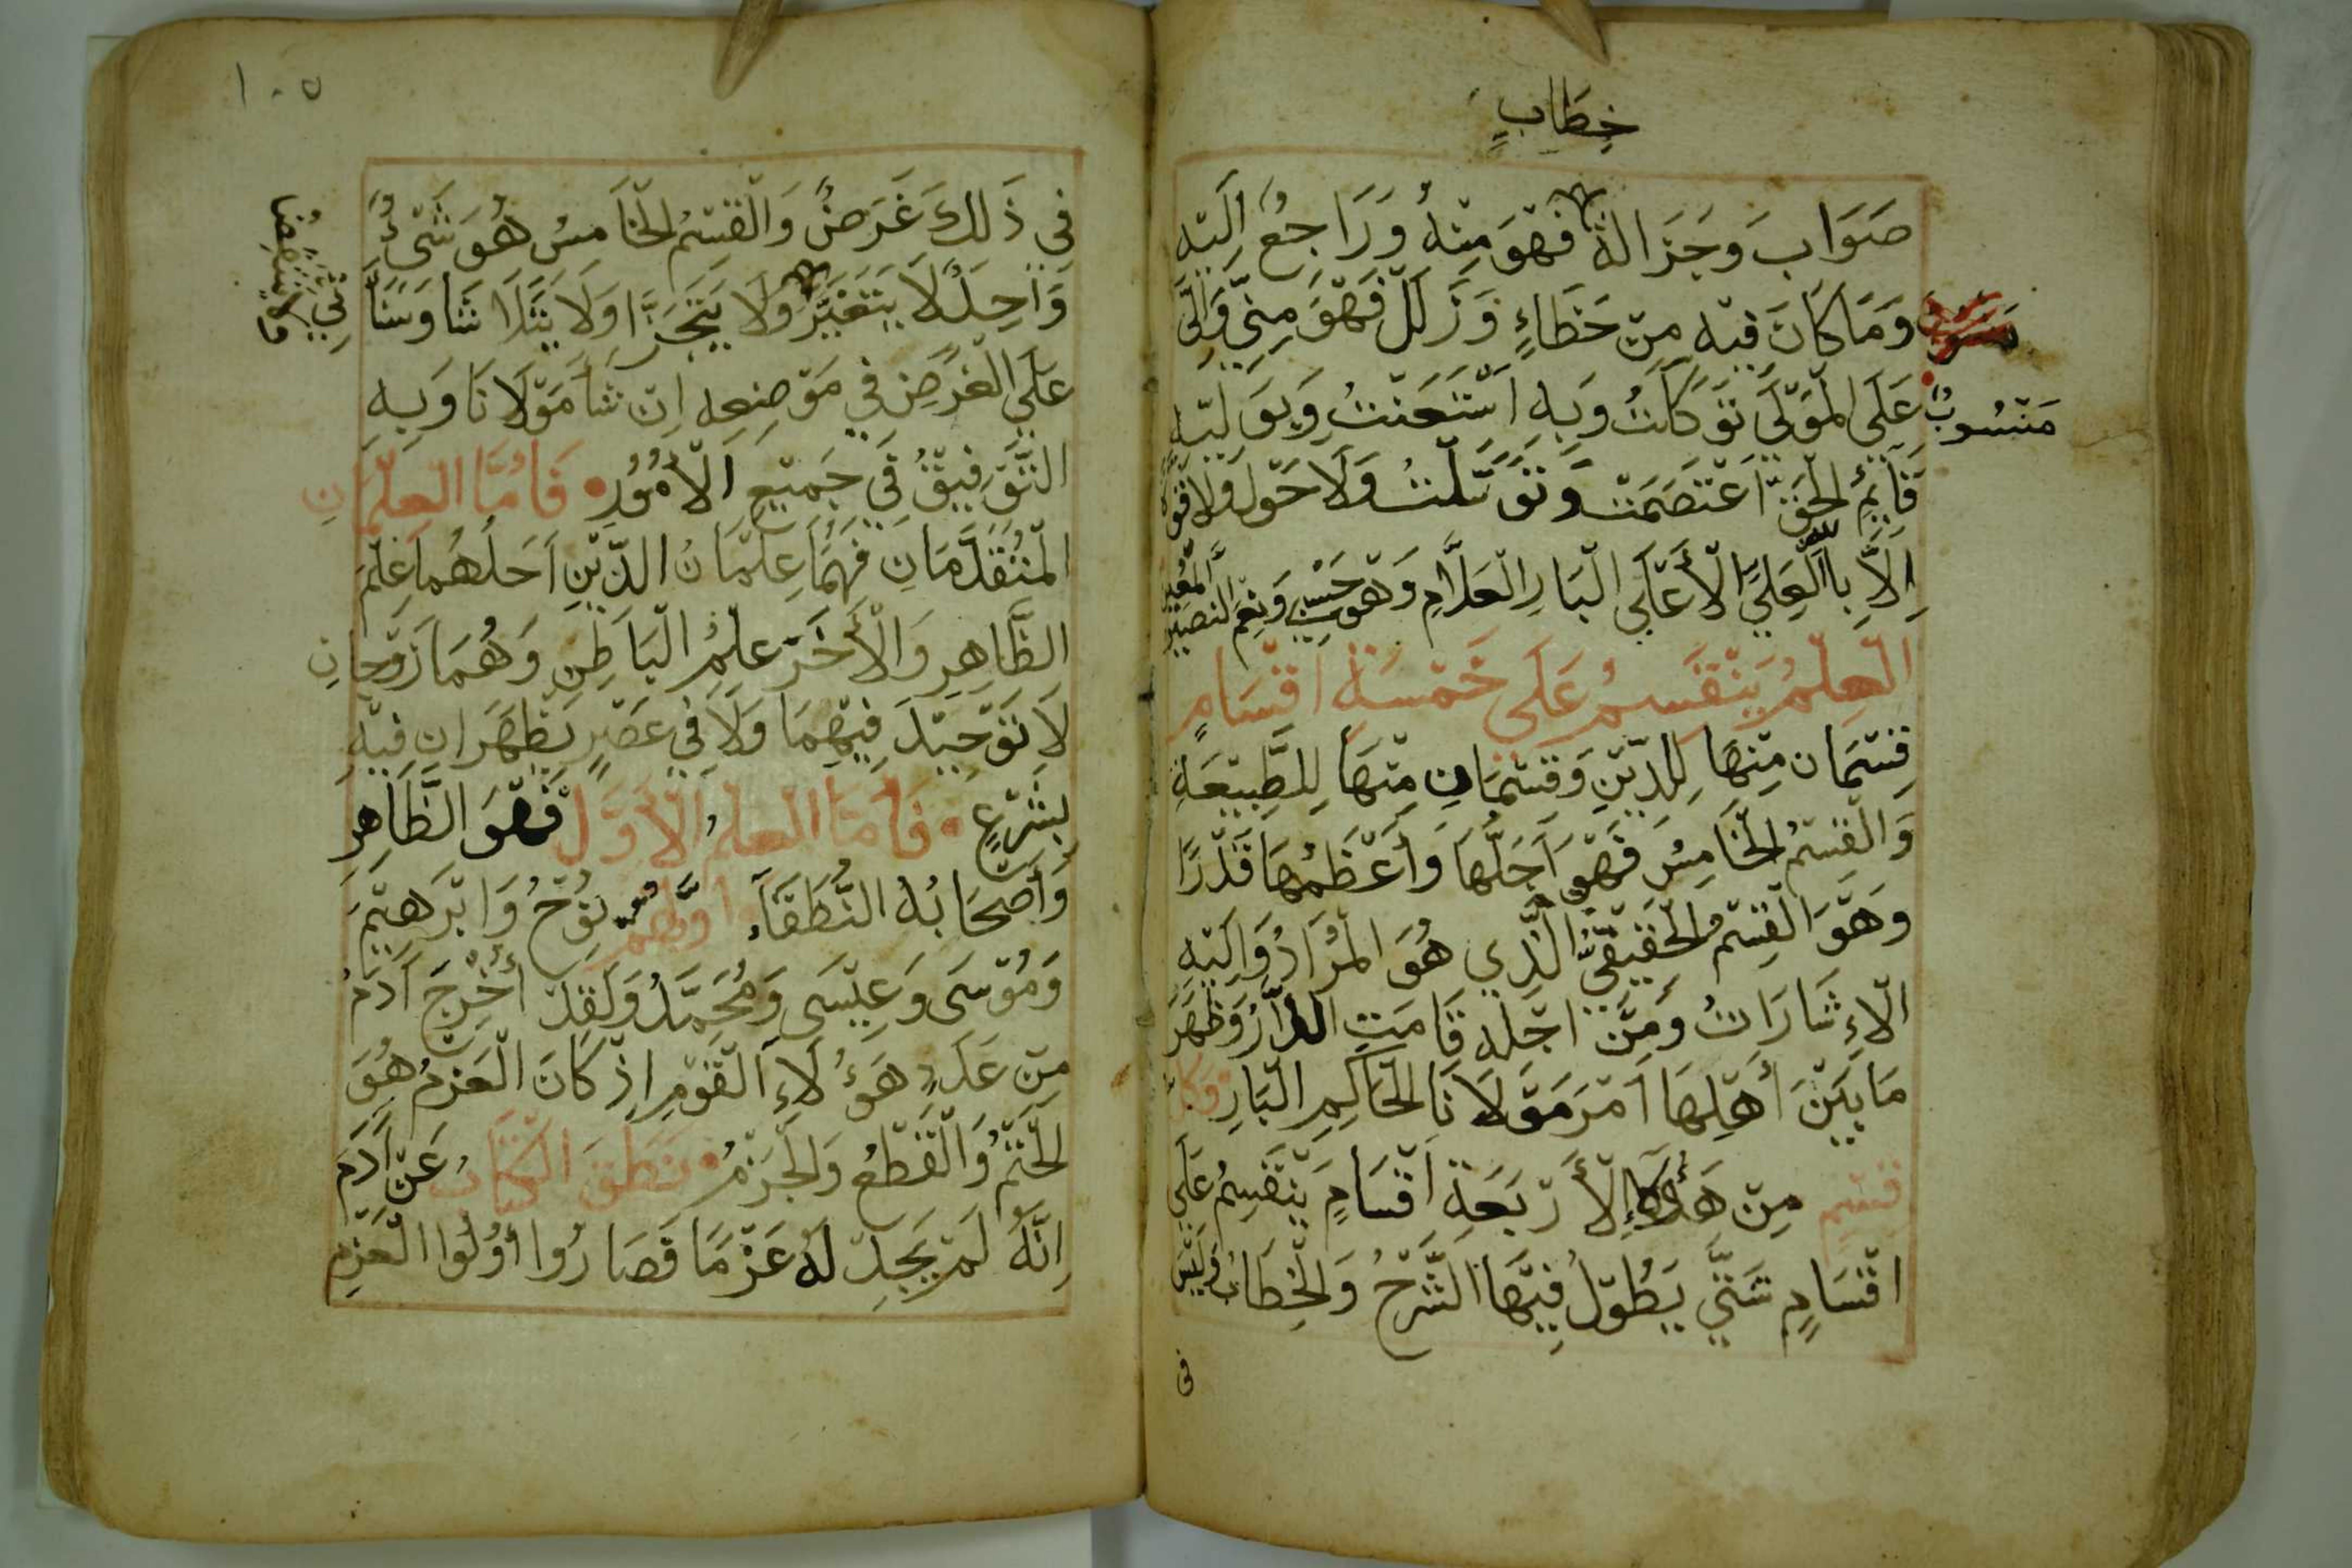 خِطَابٍ
صَوَابَ وَجَزَالة فَهْوَ مِنْهُ وَرَاجِعُ اِلَيْهِ
وَمَا كَانَ فيْهِ مِنْ خَطَاءٍ وَزَلَلْ فَهْوَ مِنّي وَالَيَّ
مَنْسُوبٌ
عَلَي الْمَوْلَي تَوَكَلْتُ وَبِهِ اسْتَعَنْتُ وَبِوَلِيّهِ
قَآيِمُ الْحَقّ اعْتَصَمْتْ وَتَوَسَّلْتُ وَلَا حَوْلَ وَلَا قُوة
اِلَّا بِاالْعَلِيَ الْأَعْلَي الْبَار الْعَلَّامِ وَهْوَ حَسْبِي وَنِعْمَ النصِيْر الْمُعِيْن
الْعِلْمُ يَنْقَسِمُ عَلَي خَمْسَةِ اقْسَامٍ
قِسْمَان مِنْهَا لِلدّيْنِ وَقِسْمَانِ مِنْهَا لِلطَّبِيْعَةِ
وَالْقِسْمُ الْخَامِسُ فَهْو اَجَلُّهَا وَأَعْظَمُهَا قَدْرًا
وَهْوَ الْقِسْمُ الْحَقِيْقِيُّ الَّذِي هُوَ الْمُرَادُ وَالَيْهِ
الْاءِشَارَاتُ وَمِنْ اجْلِهِ قَامَتِ الدَّارُ وَظَهَرَ
مَا بَيْنَ أَهْلِهَا اَمْرَ مَوْلَانَا الْحَاكِمِ الْبَارِ وَكل
قسْمٍ مِنْ هَؤُلَاءِ الْأَرْبَعَةِ اَقْسَامٍ يَنْقَسِمُ عَلَي
اقْسَامٍ شَتَّي يَطُوْلُ فِيْهَا الشَّرْحُ وَالْخِطَابُ وَلَيْسَ
في
١٠٥
فِي ذَلِكَ غَرَضٌ وَالْقِسْمُ الْخَامِسُ هُوَ شَيْءٌ
وَاحِدٌ لَا يَتَغَيَّرُ وَلَا يَتَجَزَّا وَلَا يَتَلَاشَا وَسَنَأْتِي
عَلَي الْغَرَضِ فِي مَوْضِعِهِ اِنْ شَأ مَوْلَانَا وَبِهِ
التَّوْفِيْقُ فِي جَمِيْعِ الْأُمُوْرِ فَأَمَّا الْعِلْمَانِ
الْمُتَقَدَّمَانِ فَهُمَا عِلْمَانُ الدّيْنِ اَحَدُهُمَا عِلْمُ
الظَّاهِرِ وَالْأَخَرْ عِلْمُ الْبَاطِنِ وَهُمَا زَوْجَانِ
لَا تَوْحِيْدَ فِيْهِمَا وَلَا فِي عَصْرٍ يَظْهَرَانِ فِيْهِ
بِشَرْعٍ فَأَمَّا الْعِلْمُ الْأَوَّلُ فَهْوَ الظَّاهِرِ
وَأَصْحَابُهُ النُّطَقَآءِ اوّلهم نُوْحُ وَابْرَهِيْمَ
وَمُوْسَى وَعِيْسَى وَمُحَمَّدُ وَلَقَدْ أُخْرِجَ آدَمُ
مِنْ عَدَدِ هَؤُلَاءِ الْقَوْمِ اِذْ كَانَ الْعَزْمُ هُوَ
الْحَتْمُ وَالْقَطْعُ وَالْجَزْمُ نَطَقَ الْكِتَابُ عَنْ اَدَمَ
اِنَّهُ لَمْ يَجِدْ لَهُ عَزْمًا فَصَارُوا أُوْلُوا الْعَزْمِ